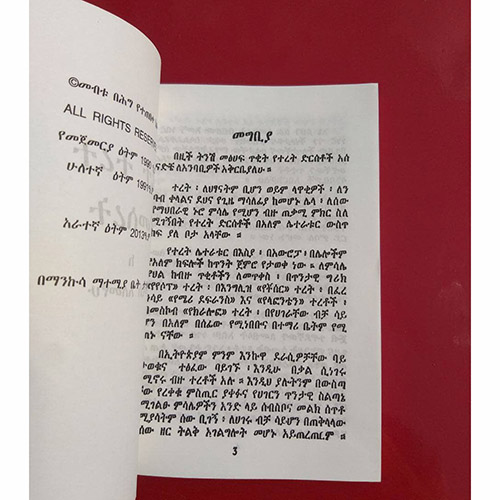 ©መብቱ በሕግ የተጠበቀ
ALL RIGHTS RESERV
የመጀመርያ ዕትም 1990
ሁለተኛ ዕትም 1991
አራተኛ ዕትም 2013
በማንኩሳ ማተሚያ ቤት
መግቢያ
በዚች ትንሽ መፅሀፍ ጥቂት የተረት ድርሰቶች አሰ
ናድቼ ለአንባቢዎች አቅርቤያለሁ ።
ተረት ፤ ለህፃናትም ቢሆን ወይም ላዋቂዎች ፤ ለን
ባብ ቀላልና ደህና የጊዜ ማሳለፊያ ከመሆኑ ሌላ ፤ ለሰው
ማህበራዊ ኑሮ ምሳሌ የሚሆን ብዙ ጠቃሚ ምክር ስለ
ሚገኝበት የተረት ድርሰቶች በአለም ሌተራቱር ውስጥ
ከፍ ያለ ቦታ አላቸው ።
የተረት ሌተራቱር በእስያ ፤ በአውሮፓ ፤ በሌሎችም
ክፍሎች ከጥንት ጀምሮ የታወቀ ነው ። ለምሳሌ
ያህል ከብዙ ጥቂቶችን ለመጥቀስ ፤ በጥንታዊ ግሪክ
«የኤሶፕ» ተረት ፤ በእንግሊዝ «የቾሰር» ተረት ፤ በፈረ
ሳይ «የሜሪ ዶፍራንስ» እና «የላፎንቴን» ተረቶች ፤
በመስኮብ «የክራሎፎ» ተረት ፤ በየሀገራቸው ብቻ ሳይ
ሆን በአለም በሰፊው የሚነበቡና በተማሪ ቤትም የሚ
ጠኑ ናቸው ።
በኢትዮጵያም ምንም እንኩዋ ደራሲዎቻቸው ባይ
ታወቁና ተፅፈው ባይገኙ ፤ እንዲሁ በቃል ሲነገሩ
የሚኖሩ ብዙ ተረቶች አሉ ። እንዲህ ያሉትንም በውስጣ
ቸው የረቀቀ ምስጢር ያቀፉና የሀገርን ጥንታዊ ስልጣኔ
የሚገልፁ ምሳሌዎችን አንድ ላይ ሰብስቦና መልክ ሰጥቶ
የሚያሳትም ሰው ቢገኝ ፤ ለሀገሩ ብቻ ሳይሆን በጠቅላላው
ለሰው ዘር ትልቅ አገልግሎት መሆኑ አይጠረጠርም ።
3